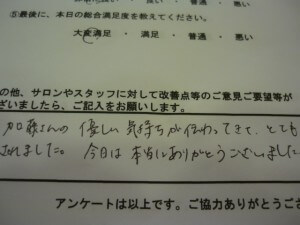 ・普通・悪い
⑤最後に、本日の総合満足度を教えてください。
大変満足 ・ 満足 ・ 普通 ・ 悪い
の他、サロンやスタッフに対して改善点等のご意見ご要望等が
ざいましたら、ご記入をお願いします。
加藤さんの 優しい 気持ちが伝わってきて、とても
されました。 今日は 本当にありがとうございました
アンケートは以上です。ご協力ありがとうござ